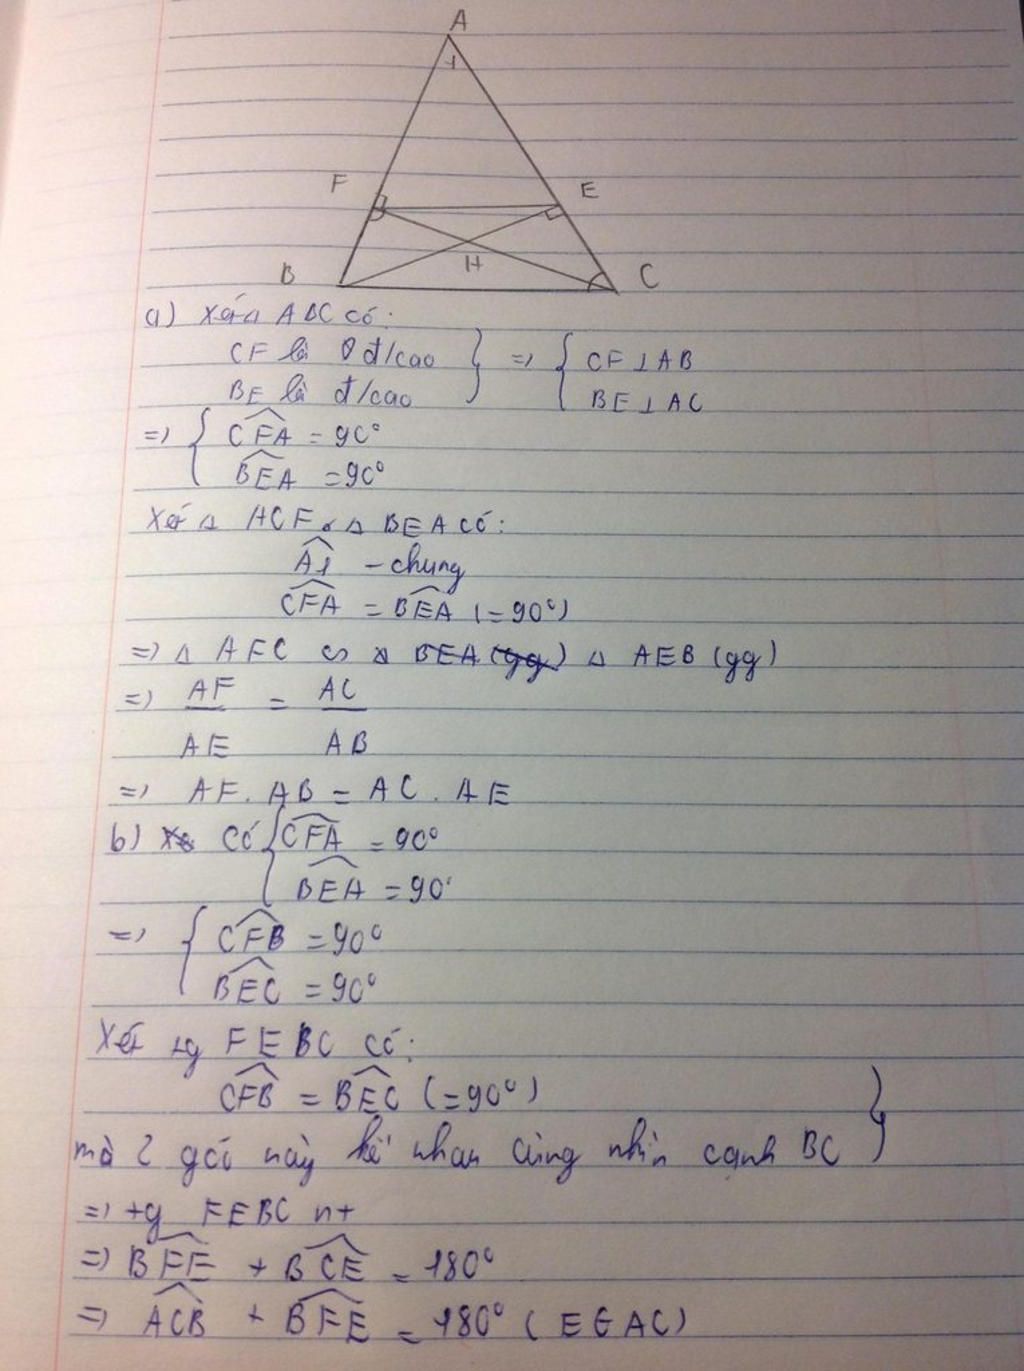 A
1
F
E
H
B
C
a) Xét △ ABC có:
CF là đ/cao } => { CF ⊥ AB
BE là đ/cao BE ⊥ AC
=> { CFA = 90°
BEA = 90°
Xét △ ACF, △ BEA có:
A1 - chung
CFA = BEA (= 90°)
=> △ AFC ∽ △ AEB (gg)
=> AF/AE = AC/AB
=> AF. AB = AC. AE
b) Có { CFA = 90°
BEA = 90°
=> { CFB = 90°
BEC = 90°
Xét tg FEBC có:
CFB = BEC (= 90°) }
mà 2 góc này kề nhau cùng nhìn cạnh BC
=> tg FEBC nt
=> BFE + BCE = 180°
=> ACB + BFE = 180° (E ∈ AC)